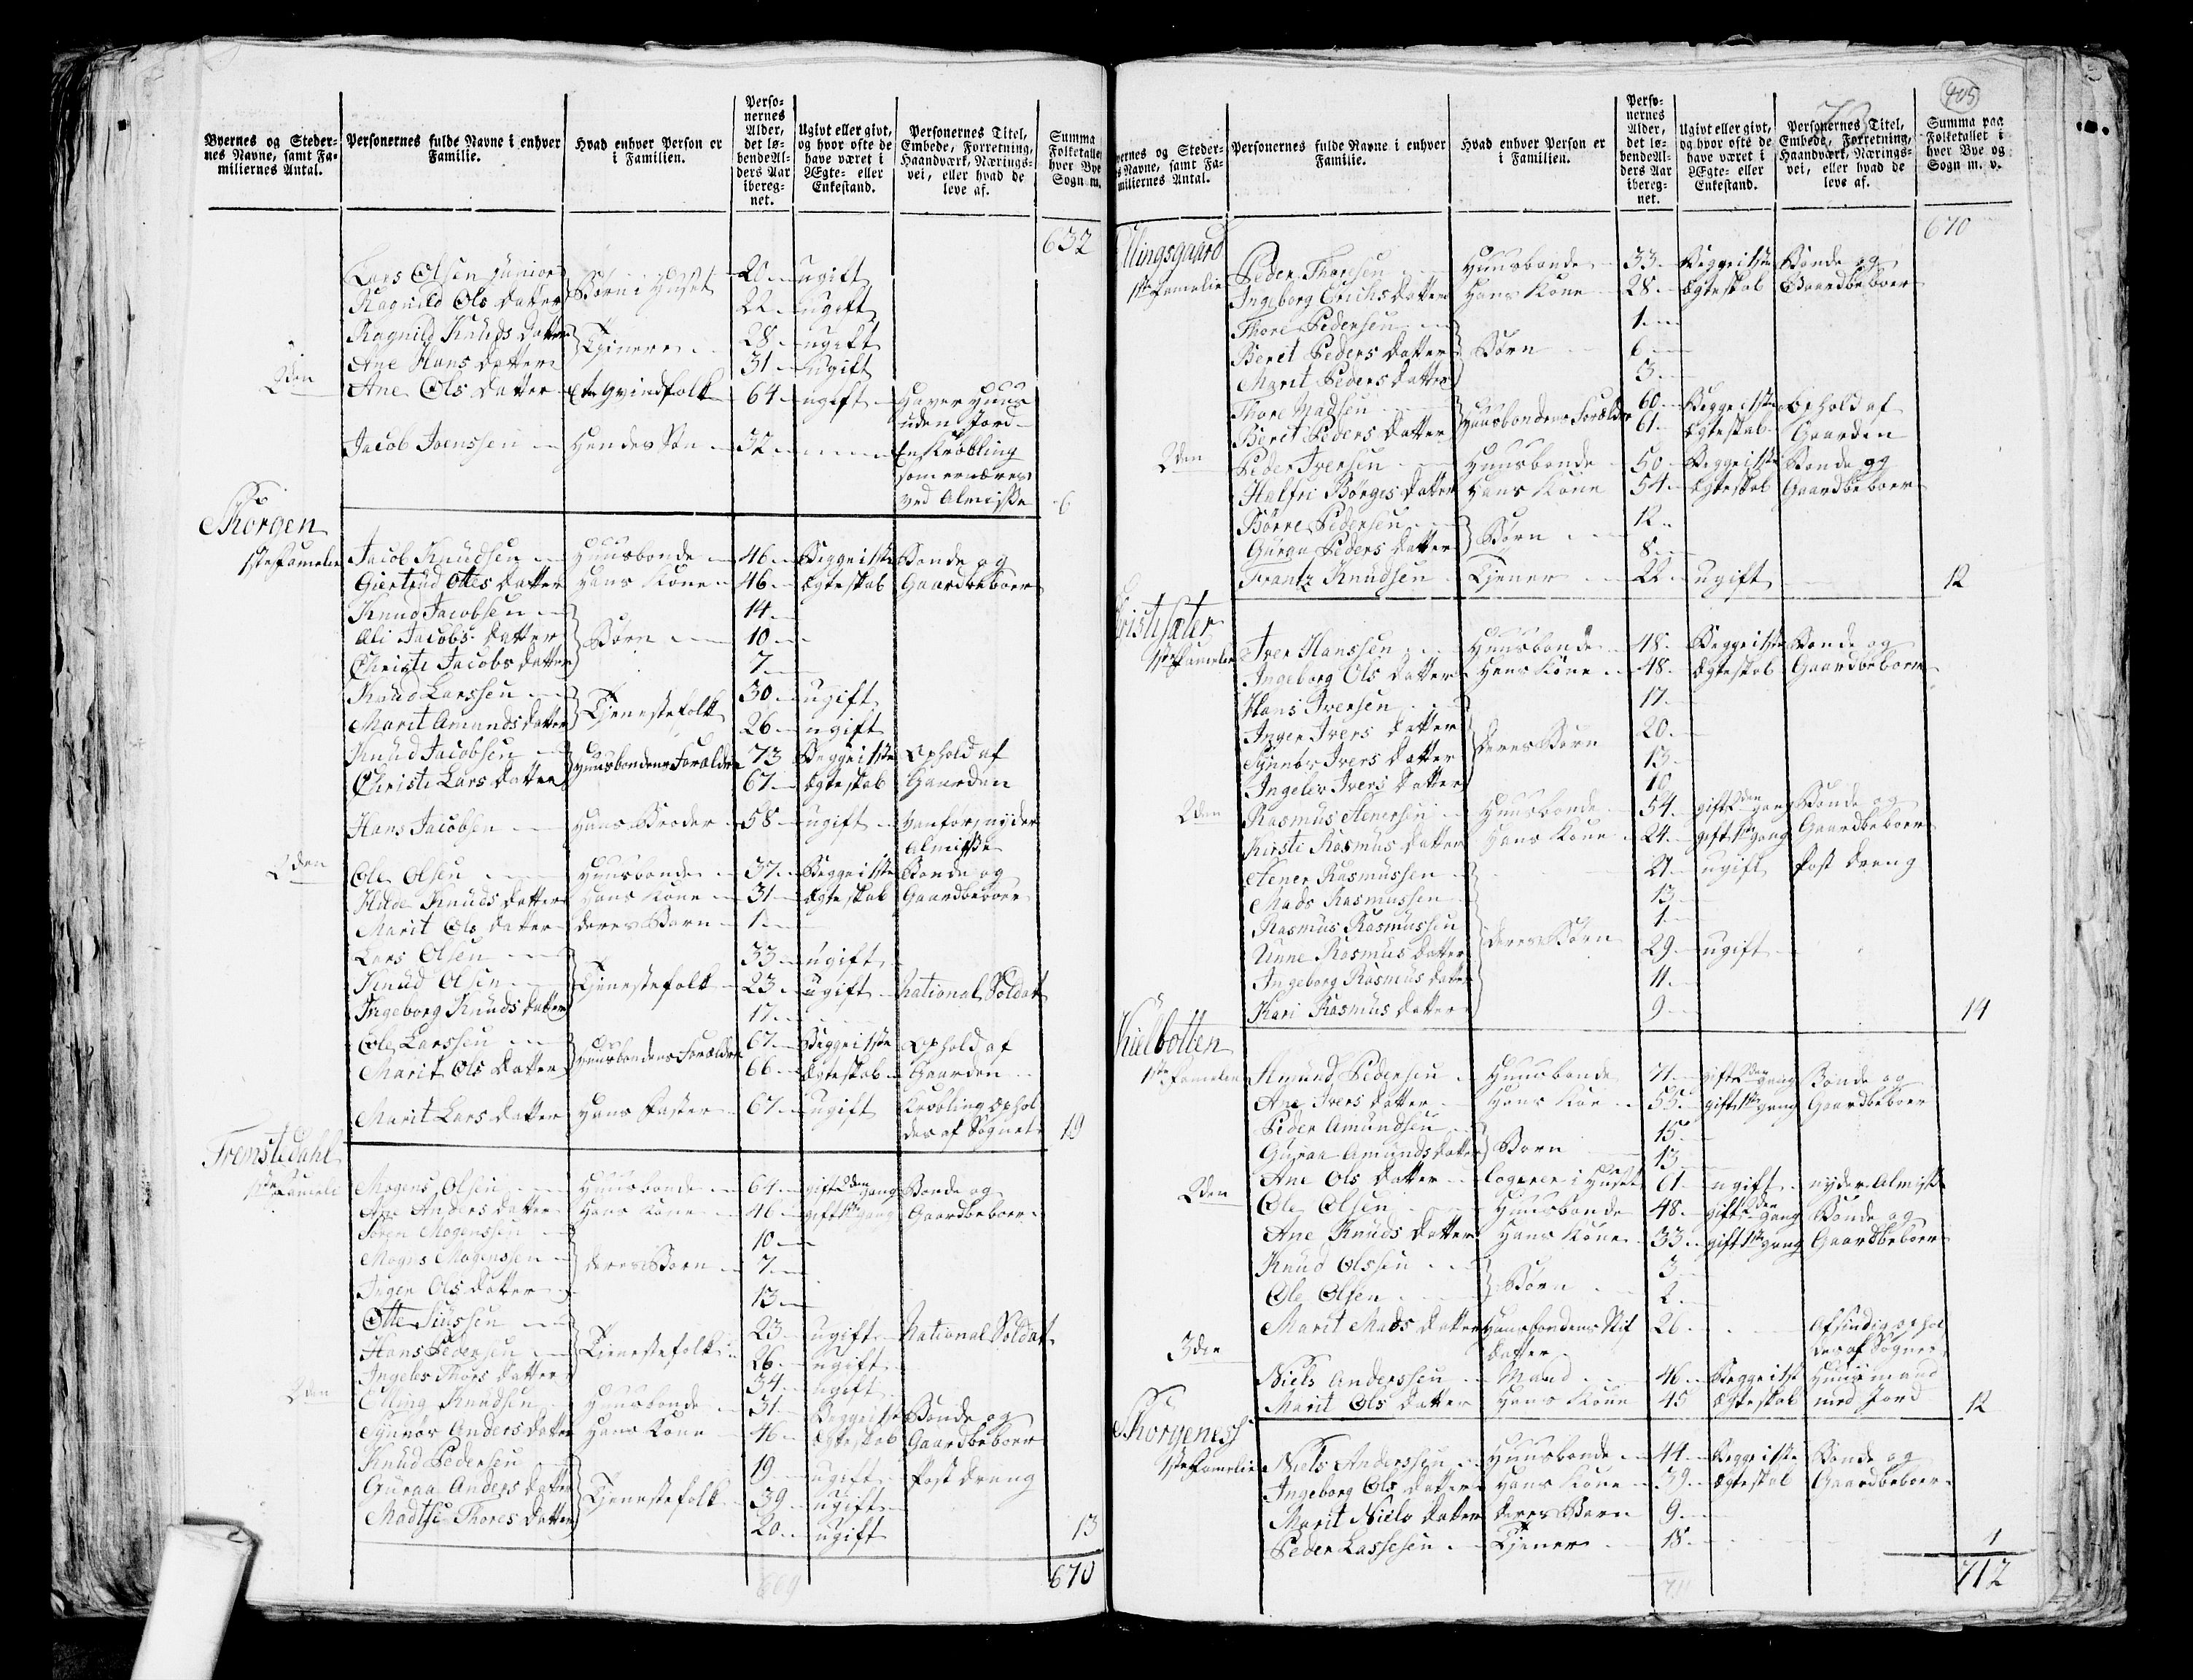 Byernes og Steder-
nes Navne, samt Fa-
miliernes Antal.
Personernes fulde Navne i enhver
Familie.
Hvad enhver Person er
i Familien.
Perso-
nernes
Alder,
det lø-
bende Al-
ders Aar
ibereg-
net.
Ugivt eller givt,
og hvor ofte de
have været i
Ægte- eller
Enkestand.
Personernes Titel,
Embede, Forretning,
Haandværk, Nærings-
vei, eller hvad de
leve af.
Summa
Folketallet
hver Bye
Sogn m.
632
Lars Olsen junior Børn i Huset 20 ugift
Ragnild Ols datter 22 ugift
Ragnild Knuds datter Tjenere 28 ugift
Ane Hans datter 31 ugift
2den Ane Ols datter Et Qvindfolk 64 ugift Haver Huus
uden Jord
Jacob Joenssen Hendes Søn 32 En Krøbling
som ernæres
ved Almisse 6
Skorgen
1ste Famelie Jacob Knudsen Huusbonde 46 Begge i 1ste Bonde og
Giertrud Otts datter Hans Kone 46 Ægteskab Gaardbeboer
Knud Jacobsen 14
Ali Jacobs datter Børn 10
Christi Jacobs datter 7
Knud Larssen Tjenestefolk 30 ugift
Marit Amunds datter 26 ugift
Knud Jacobsen Huusbondens Forældre 73 Begge i 1ste Ophold af
Christi Lars datter 67 Ægteskab Gaarden
Hans Jacobsen Hans Broder 58 ugift Vanfør, nyder
Almisse
2den Ole Olsen Huusbonde 37 Begge i 1ste Bonde og
Hilde Knuds datter Hans Kone 31 Ægteskab Gaardbeboer
Marit Ols datter deres Barn 1
Lars Olsen 33 ugift
Knud Olsen Tjenestefolk 23 ugift National Soldat
Ingeborg Knuds datter 17
Ole Larssen Huusbondens Forældre 67 Begge i 1ste Ophold af
Marit Ols datter 66 Ægteskab Gaarden
Marit Lars datter Hans Faster 67 ugift Krøbling ophol
des af Sognet 19
Fremstedahl
1ste Fameli Mogens Olsen Huusbonde 64 gift 2den gang Bonde og
Ane Anders datter Hans Kone 46 gift 1ste gang Gaardbeboer
Søren Mogenssen 10
Mogns Mogenssen deres Børn 7
Inger Ols datter 13
Otte Siurssen 23 ugift National Soldat
Hans Pedersen Tjenestefolk 26 ugift
Ingeles Thors datter 34 ugift
2den Elling Knudsen Huusbonde 31 Begge i 1ste Bonde og
Synnøv Anders datter Hans Kone 46 Ægteskab Gaardbeboer
Knud Pedersen 19 ugift Post dreng
Guraa Anders datter Tjenestefolk 39 ugift
Madtse Thores datter 20 ugift 13
669 670
405
Byernes og Steder-
nes Navne, samt Fa-
miliernes Antal.
Personernes fulde Navne i enhver
Familie.
Hvad enhver Person er
i Familien.
Perso-
nernes
Alder,
det lø-
bende Al-
ders Aar
ibereg-
net.
Ugivt eller givt,
og hvor ofte de
have været i
Ægte- eller
Enkestand.
Personernes Titel,
Embede, Forretning,
Haandværk, Nærings-
vei, eller hvad de
leve af.
Summa paa
Folketallet i
hver Bye og
Sogn m. v.
670
Ellingsgaard
1ste Famelie Peder Thoresen Huusbonde 33 Begge i 1ste Bonde og
Ingeborg Erichs datter Hans Kone 28 Ægteskab Gaardbeboer
Thore Pedersen 1
Berit Peders datter Børn 6
Marit Peders datter 3
Thore Madsen Huusbondens Forældre 60 Begge i 1ste Ophold af
Berit Peders datter 61 Ægteskab Gaarden
2den Peder Iversen Huusbonde 50 Begge i 1ste Bonde og
Halfri Børges datter Hans Kone 54 Ægteskab Gaardbeboer
Børre Pedersen Børn 12
Gurua Peders datter 8
Frantz Knudsen Tjener 22 ugift 12
Christisæter
1ste Famelie Iver Hanssen Huusbonde 48 Begge i 1ste Bonde og
Ingeborg Ols datter Hans Kone 48 Ægteskab Gaardbeboer
Hans Iversen 17
Inger Ivers datter deres Børn 20
Synnøv Ivers datter 13
Ingelev Ivers datter 10
2den Rasmus Stenersen Huusbonde 54 gift 2den gang Bonde og
Kirsti Rasmus datter Hans Kone 24 gift 1ste gang Gaardbeboer
Stener Rasmussen 21 ugift Post dreng
Mads Rasmussen 13
Rasmus Rasmussen deres Børn 1
Unne Rasmus datter 29 ugift
Ingeborg Rasmus datter 11
Kari Rasmus datter 9 14
Kielbotten
1ste Famelie Amund Pedersen Huusbonde 71 gift 2den gang Bonde og
Ane Ivers datter Hans Kone 55 gift 1ste gang Gaardbeboer
Peder Amundsen Børn 15
Guraa Amunds datter 13
Ane Ols datter logerer i Huset 61 ugift nyder Almisse
2den Ole Olsen Huusbonde 48 gift 2den gang Bonde og
Ane Knuds datter Hans Kone 33 gift 1ste gang Gaardbeboer
Knud Olssen Børn 3
Ole Olsen 2
Marit Mads datter Huusbondens Stif 26 Afsindig ophol
datter des af Sognet
3die Niels Anderssen Mand 46 Begge i 1ste Huusmand
Marit Ols datter Hans Kone 45 Ægteskab med Jord 12
Skorgeness
1ste Famelie Niels Anderssen Huusbonde 44 Begge i 1ste Bonde og
Ingeborg Ols datter Hans Kone 39 Ægteskab Gaardbeboer
Marit Niels datter deres Barn 9
Peder Lassesen Tjener 18
711 712